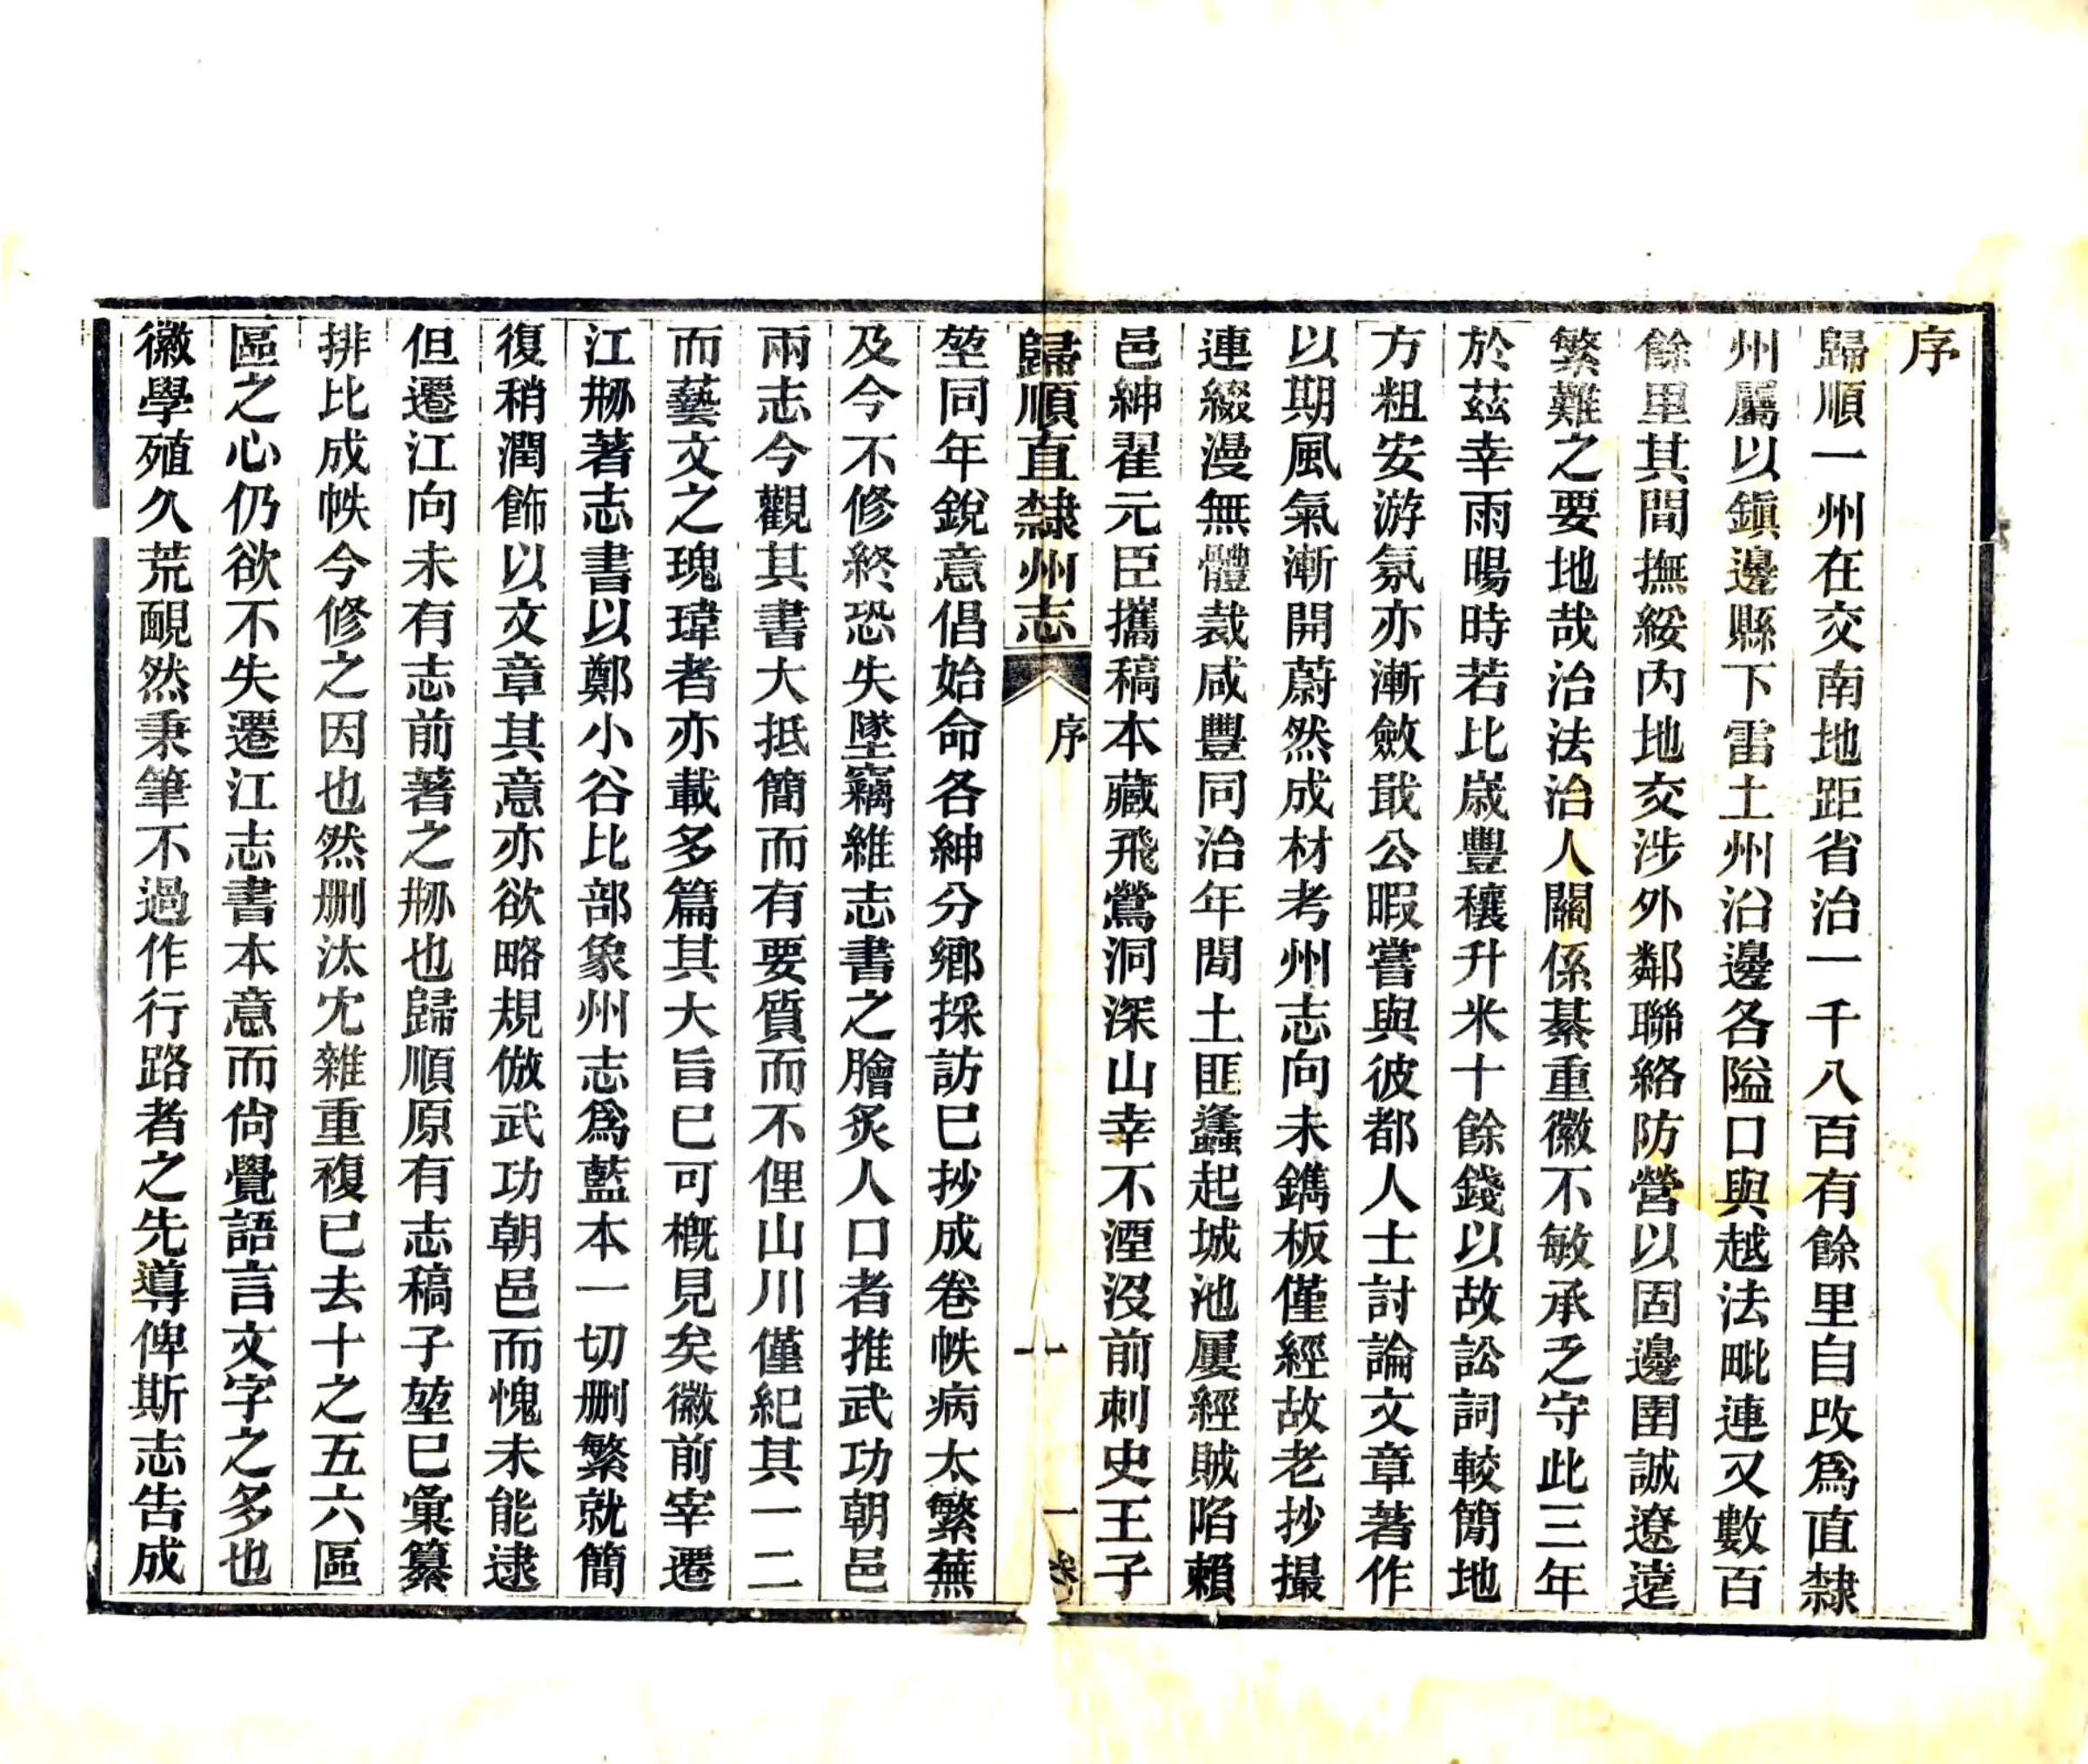 序
歸順一州在交南地距省治一千八百有餘里自改爲直隸
州屬以鎭邊縣下雷土州沿邊各隘口與越法毗連又數百
餘里其間撫綏內地交涉外鄰聯絡防營以固邊圉誠遼遠
繁難之要地哉治法治人關係綦重徽不敏承乏守此三年
於茲幸雨暘時若比歲豐穰升米十餘錢以故訟詞較簡地
方粗安游氛亦漸斂戢公暇嘗與彼都人士討論文章著作
以期風氣漸開蔚然成材考州志向未鐫板僅經故老抄撮
連綴漫無體裁咸豐同治年間土匪蠭起城池屢經賊陷賴
邑紳翟元臣攜稿本藏飛鶯洞深山幸不湮沒前刺史王子
歸順直隸州志
序
一
堃同年銳意倡始命各紳分鄉採訪巳抄成卷帙病太繁蕪
及今不修終恐失墜竊維志書之膾炙人口者推武功朝邑
兩志今觀其書大抵簡而有要質而不俚山川僅紀其一二
而藝文之瑰瑋者亦載多篇其大旨巳可槪見矣徽前宰遷
江剙著志書以鄭小谷比部象州志爲藍本一切删繁就簡
復稍潤飾以文章其意亦欲略規倣武功朝邑而愧未能逮
但遷江向未有志前著之剙也歸順原有志稿子堃巳彙纂
排比成帙今修之因也然删汰宂雜重複已去十之五六區
區之心仍欲不失遷江志書本意而尙覺語言文字之多也
徽學殖久荒靦然秉筆不過作行路者之先導俾斯志告成